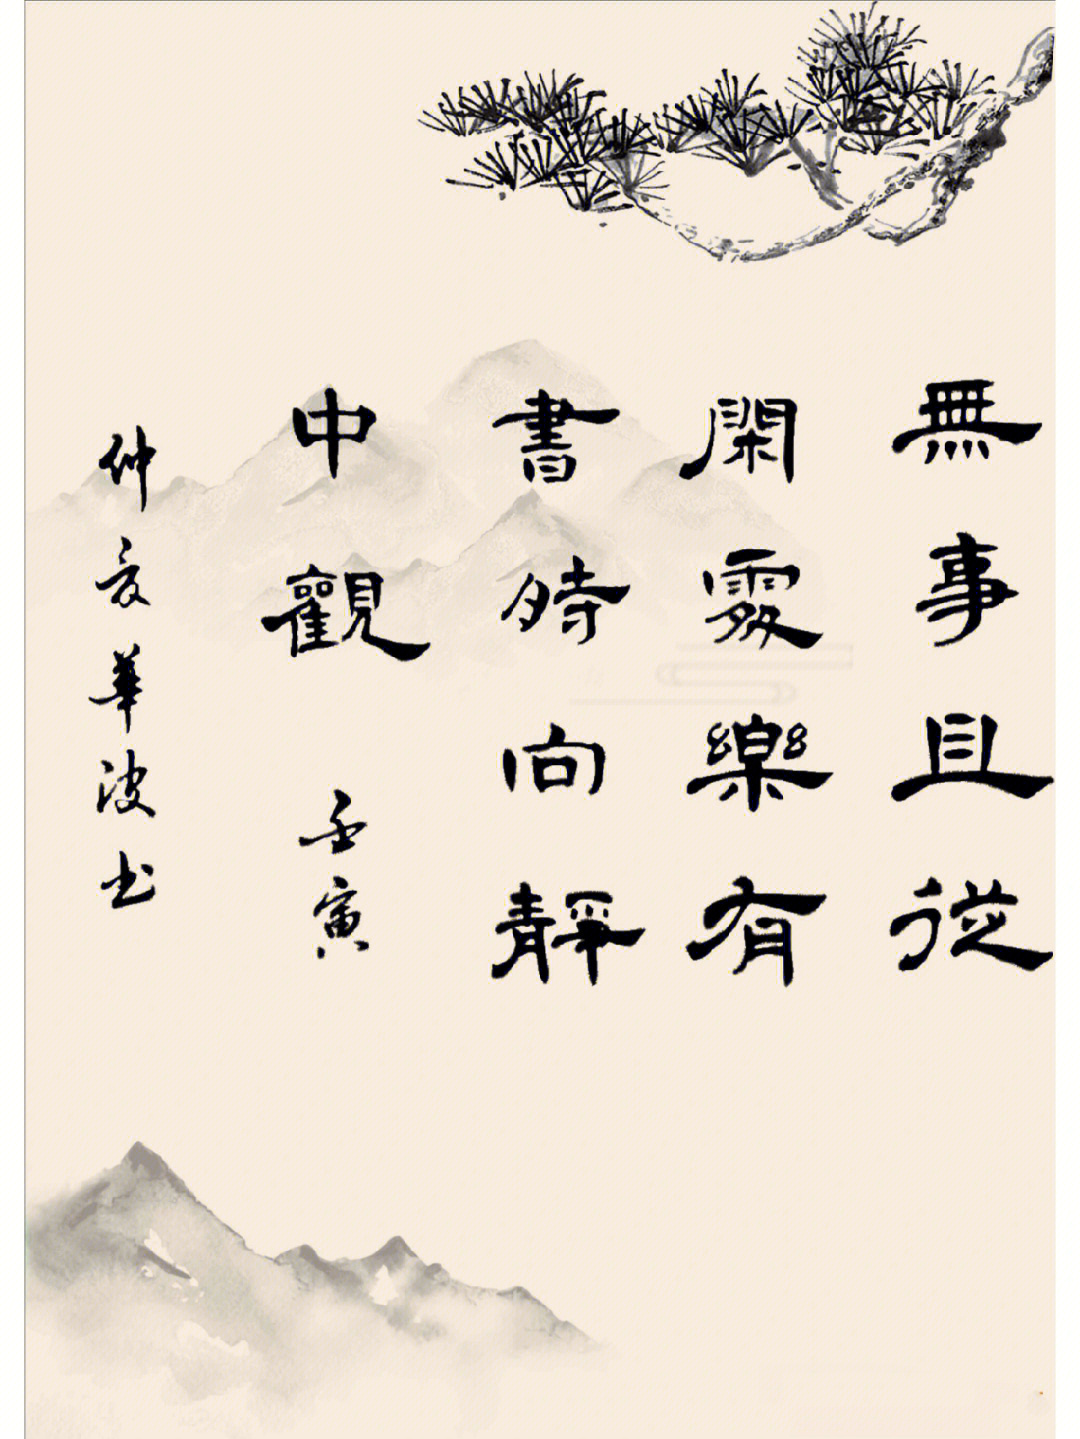 無事且從
閑處樂有
書時向靜
中觀 壬寅
仲夏華波书